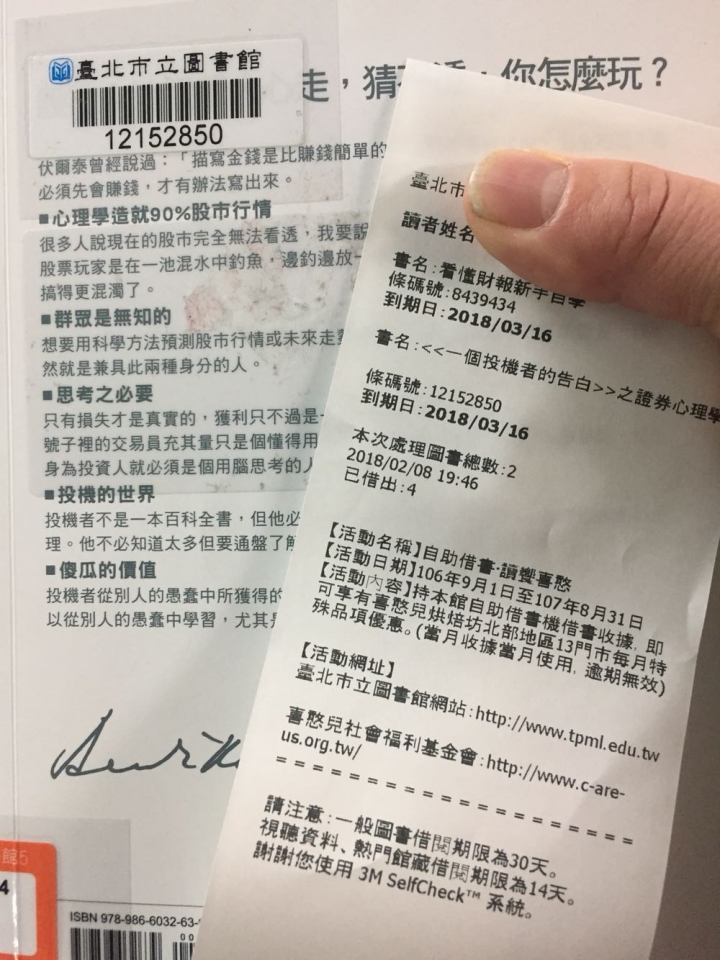 臺北市立圖書館
12152850
走，猜不透，你怎麼玩？
伏爾泰曾經說過：「描寫金錢是比賺錢簡單的
必須先會賺錢，才有辦法寫出來。
■心理學造就90%股市行情
很多人說現在的股市完全無法看透，我要說
股票玩家是在一池混水中釣魚，邊釣邊放一
搞得更混濁了。
■群眾是無知的
想要用科學方法預測股市行情或未來走
然就是兼具此兩種身分的人。
■思考之必要
只有損失才是真實的，獲利只不過是
號子裡的交易員充其量只是個懂得用
身為投資人就必須是個用腦思考的人
■投機的世界
投機者不是一本百科全書，但他必
理。他不必知道太多但要通盤了解
■傻瓜的價值
投機者從別人的愚蠢中所獲得的
以從別人的愚蠢中學習，尤其是
館5
4
ISBN 978-986-6032-63-
0 0
臺北市
讀者姓名
書名:看懂財報新手自學
條碼號:8439434
到期日:2018/03/16
書名:<<一個投機者的告白>>之證券心理學
條碼號:12152850
到期日:2018/03/16
本次處理圖書總數:2
2018/02/08 19:46
已借出:4
【活動名稱】自助借書·讀饗喜憨
【活動日期】106年9月1日至107年8月31日
【活動內容】持本館自助借書機借書收據, 即
可享有喜憨兒烘焙坊北部地區13門市每月特
殊品項優惠。(當月收據當月使用, 逾期無效)
【活動網址】
臺北市立圖書館網站:http://www.tpml.edu.tw
喜憨兒社會福利基金會:http://www.c-are-
us.org.tw/
====================
請注意:一般圖書借閱期限為30天。
視聽資料、熱門館藏借閱期限為14天。
謝謝您使用 3M SelfCheck™ 系統。